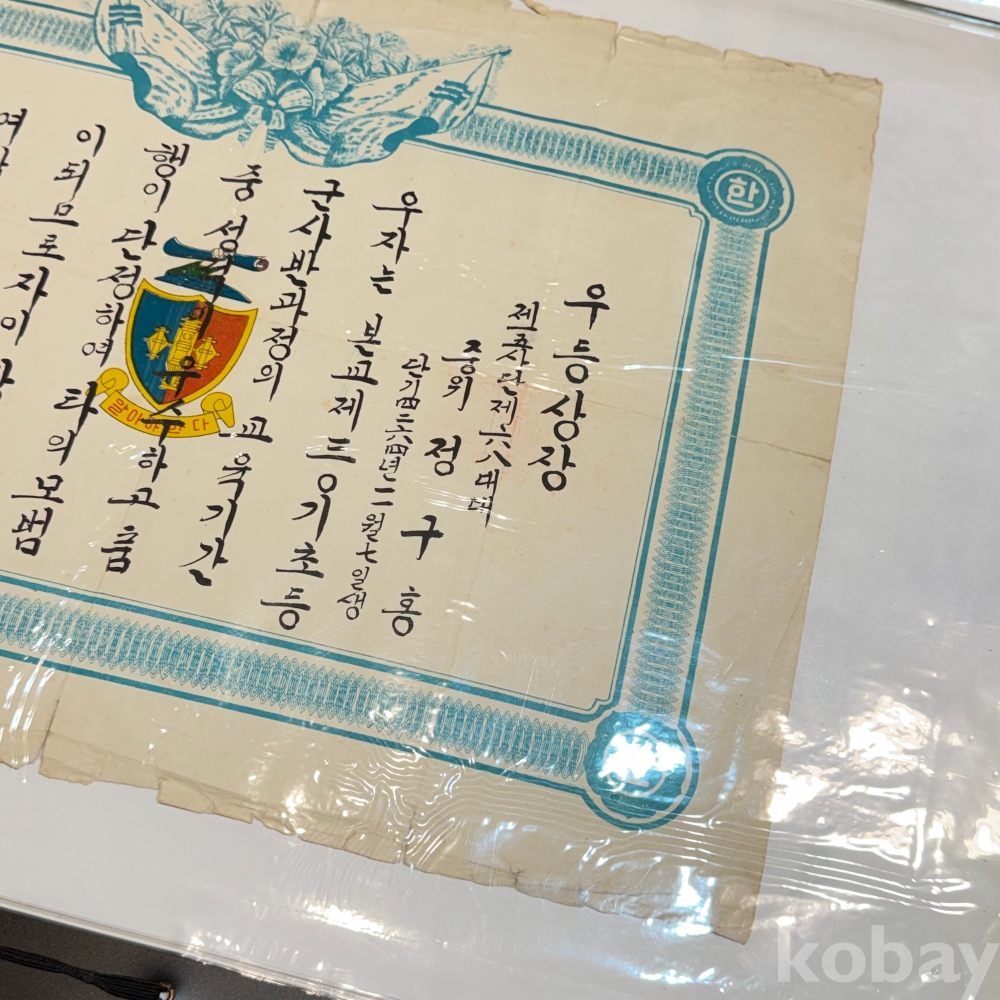 한
우등상장
제五사단제六八대대
중위 정 구 홍
단기四二六四년二월七일생
우자는 본교제三〇기초등
군사반과정의 교육기간
중 성적이 우수하고 품
행이 단정하여 타의 모범
이되므로자이
여
알아야한다
kobay